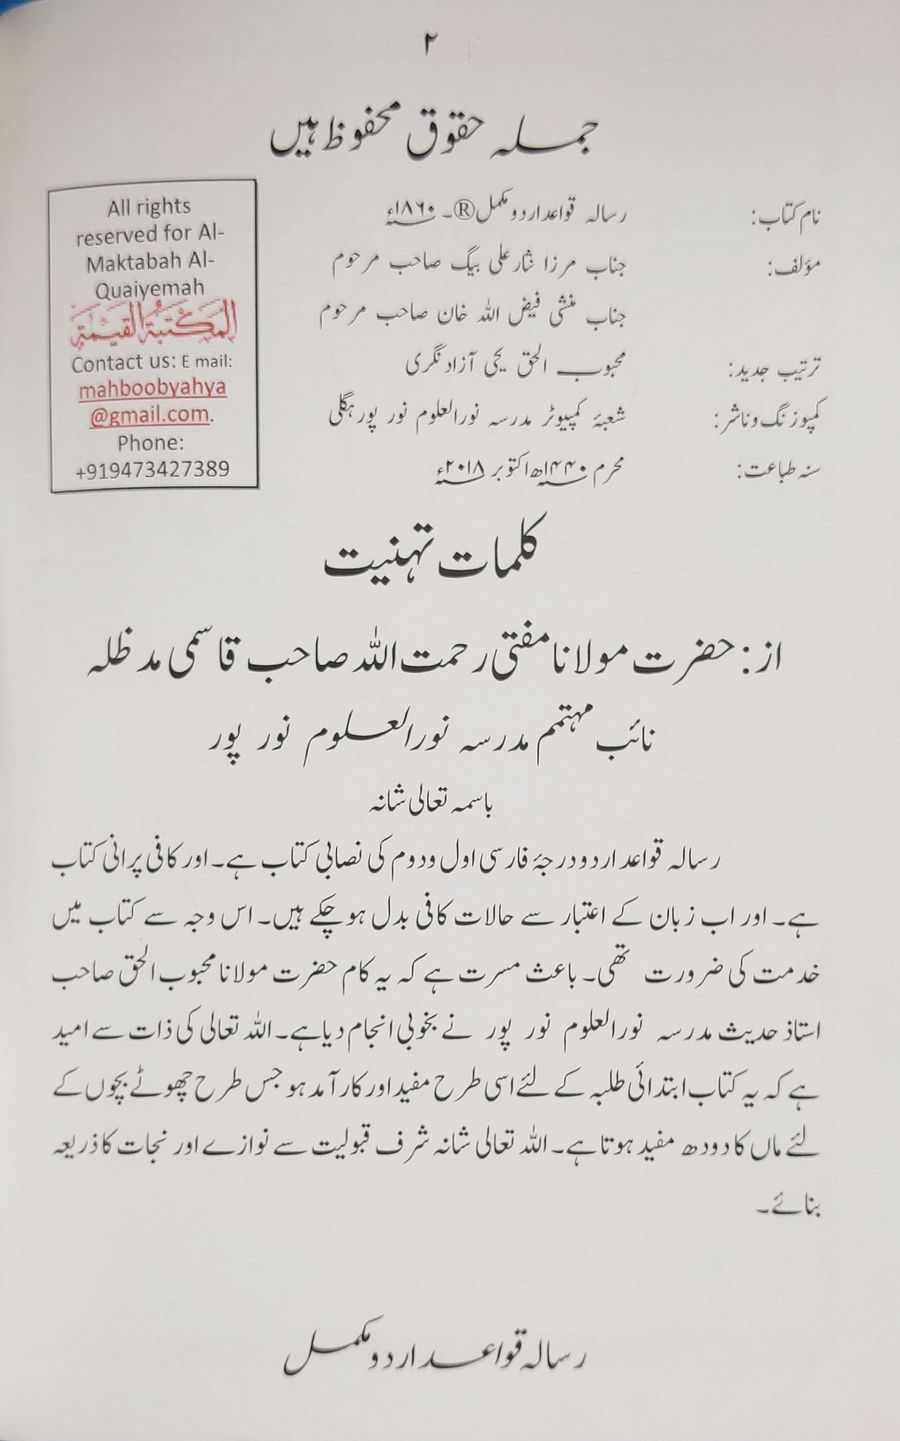 ۲
جملہ حقوق محفوظ ہیں
نام کتاب: رسالہ قواعد اردو مکمل®۔ ۱۸۶۰ء
مؤلف: جناب مرزا نثار علی بیگ صاحب مرحوم
جناب منشی فیض اللہ خان صاحب مرحوم
ترتیب جدید: محبوب الحق یحی آزاد نگری
کمپوزنگ وناشر: شعبۂ کمپیوٹر مدرسہ نورالعلوم نور پور ہگلی
سنہ طباعت: محرم ۱۴۴۰ھ اکتوبر ۲۰۱۸ء
All rights
reserved for Al-
Maktabah Al-
Quaiyemah
المكتبة القيمة
Contact us: E mail:
mahboobyahya
@gmail.com.
Phone:
+919473427389
کلمات تہنیت
از: حضرت مولانا مفتی رحمت اللہ صاحب قاسمی مدظلہ
نائب مہتمم مدرسہ نورالعلوم نور پور
باسمہ تعالی شانہ
رسالہ قواعد اردو درجۂ فارسی اول ودوم کی نصابی کتاب ہے۔ اور کافی پرانی کتاب
ہے۔ اور اب زبان کے اعتبار سے حالات کافی بدل ہو چکے ہیں۔ اس وجہ سے کتاب میں
خدمت کی ضرورت تھی۔ باعث مسرت ہے کہ یہ کام حضرت مولانا محبوب الحق صاحب
استاذ حدیث مدرسہ نورالعلوم نور پور نے بخوبی انجام دیا ہے۔ اللہ تعالی کی ذات سے امید
ہے کہ یہ کتاب ابتدائی طلبہ کے لئے اسی طرح مفید اور کار آمد ہو جس طرح چھوٹے بچوں کے
لئے ماں کا دودھ مفید ہوتا ہے۔ اللہ تعالی شانہ شرف قبولیت سے نوازے اور نجات کا ذریعہ
بنائے۔
رسالہ قواعد اردو مکمل